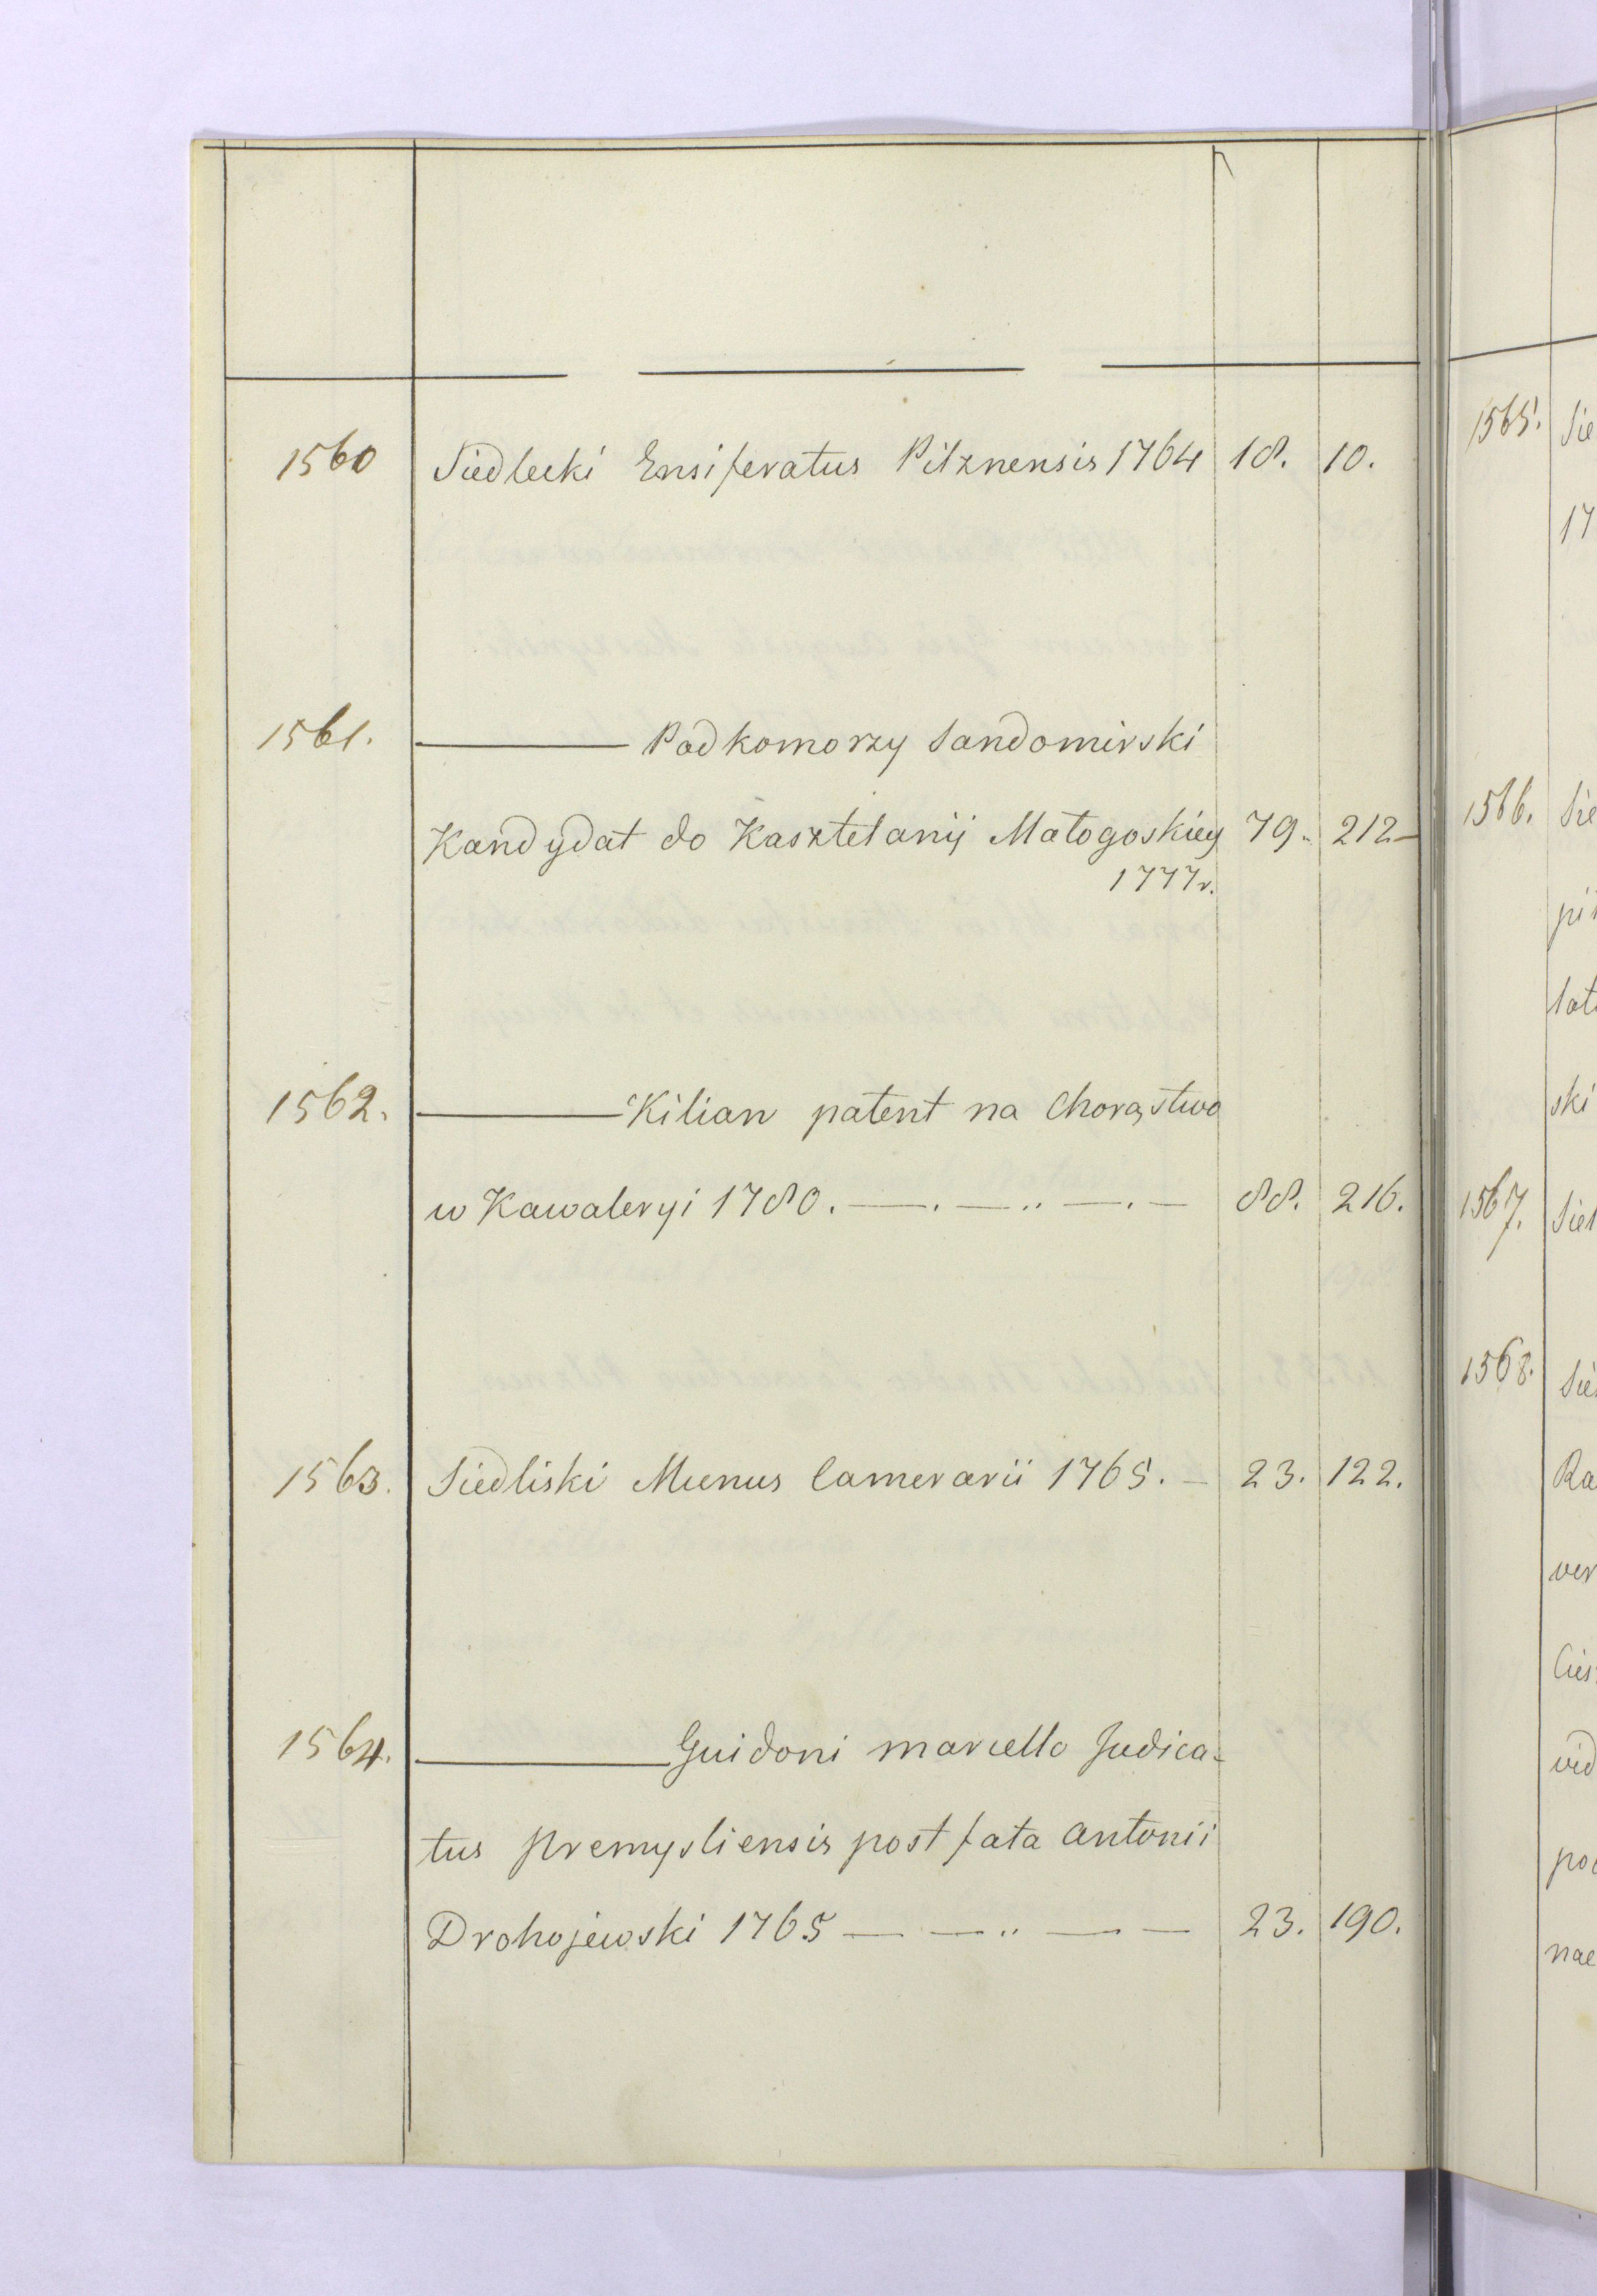 1560 Siedlecki Ensiferatus Pilznensis 1764 18. 10.
1561. ——— Podkomorzy Sandomirski
Kandydat do Kasztelanij Małogoskiey 79. 212—
1777r.
1562. ——— Kilian patent na Chorąstwo
w Kawaleryi 1780. —. —.. —. — 88. 216.
1563. Siedliski Munus Camerarii 1765. — 23. 122.
1564. ——— Guidoni marcello Judica-
tus Premysliensis post fata Antonii
Drohojewski 1765 — —.. — — 23. 190.
1565. Sie
17
1566. Sie
ski
1567. Siel
1568. Sie
Ra
ver
vid
nae